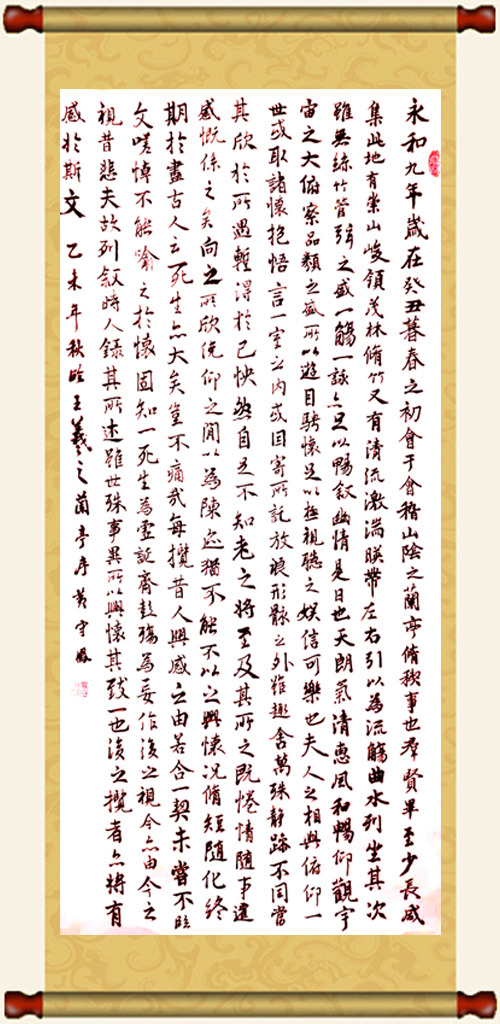 永和九年歲在癸丑暮春之初會于會稽山陰之蘭亭脩稧事也羣賢畢至少長咸
集此地有崇山峻領茂林脩竹又有清流激湍暎帶左右引以為流觴曲水列坐其次
雖無絲竹管弦之盛一觴一詠亦足以暢敘幽情是日也天朗氣清惠風和暢仰觀宇
宙之大俯察品類之盛所以遊目騁懷足以極視聽之娛信可樂也夫人之相與俯仰一
世或取諸懷抱悟言一室之內或因寄所託放浪形骸之外雖趣舍萬殊静躁不同當
其欣於所遇蹔得於己怏然自足不知老之將至及其所之既惓情隨事遷
感慨係之矣向之所欣俛仰之閒以為陳迹猶不能不以之興懷況脩短隨化終
期於盡古人云死生亦大矣豈不痛哉每攬昔人興感之由若合一契未嘗不臨
文嗟悼不能喻之於懷固知一死生為虛誕齊彭殤為妄作後之視今亦由今之
視昔悲夫故列敘時人錄其所述雖世殊事異所以興懷其致一也後之攬者亦將有
感於斯文 乙未年秋 王羲之蘭亭序黄守鳳